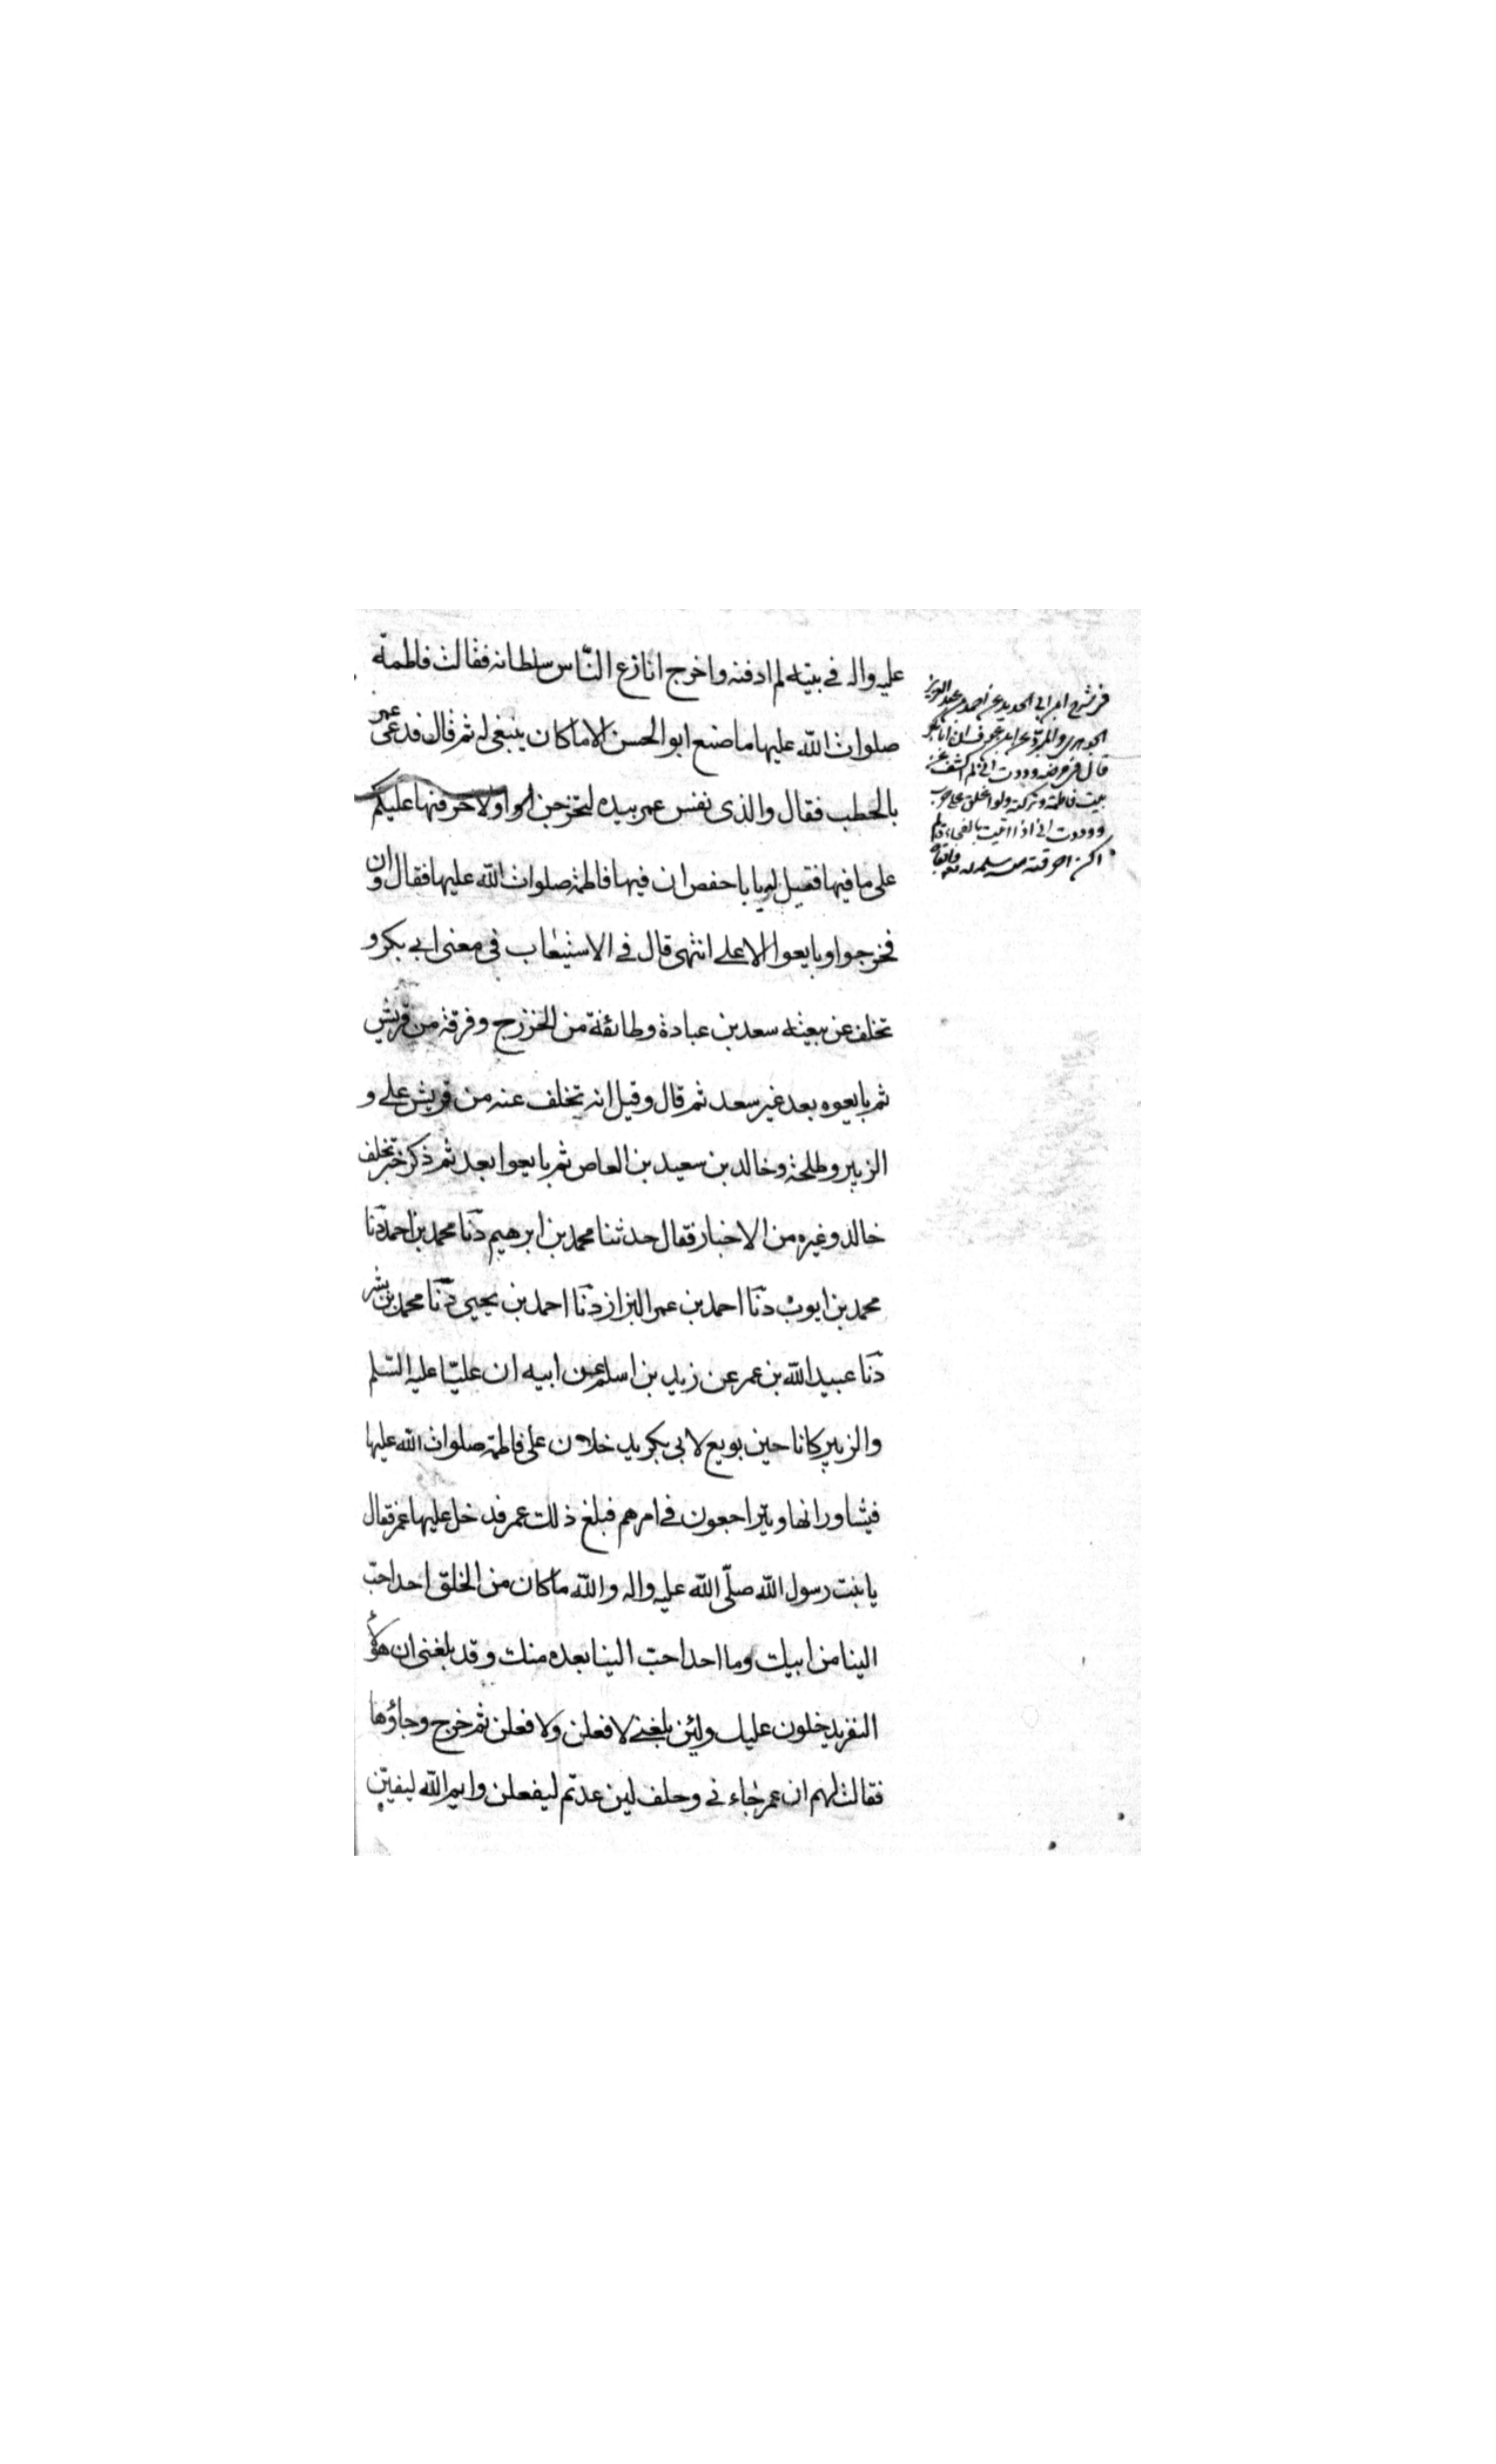 عليه واله في بيته لم ادفنه واخرج انازع النّاس سلطانه فقالت فاطمة
صلوات الله عليها ما صنع ابو الحسن الا ما كان ينبغي له ثم قال فدعى عمر
بالحطب فقال والذى نفس عمر بيده لتخرجن او لاحرقنها عليكم
على ما فيها فقيل له يا باحفص ان فيها فاطمة صلوات الله عليها فقال وان
فخرجوا وبايعوا الا علي انتهى قال في الاستيعاب في معنى ابي بكر و
تخلف عن بيعته سعد بن عبادة وطائفة من الخزرج وفرقة من قريش
ثم بايعوه بعد غير سعد ثم قال وقيل انه تخلف عنه من قريش علي و
الزبير وطلحة وخالد بن سعيد بن العاص ثم بايعوا بعد ثم ذكر خبر تخلف
خالد وغيره من الاخبار فقال حدثنا محمد بن ابرهيم دنا محمد بن احمد دنا
محمد بن ايوب دنا احمد بن عمر البزاز دنا احمد بن يحيى دنا محمد بن بشر
دنا عبيد الله بن عمر عن زيد بن اسلم عن ابيه ان عليّا عليه السّلم
والزبير كانا حين بويع لابي بكر يدخلان على فاطمة صلوات الله عليها
فيشاورانها ويتراجعون في امرهم فبلغ ذلك عمر فدخل عليها عمر فقال
يا بنت رسول الله صلّى الله عليه واله والله ما كان من الخلق احد احبّ
الينا من ابيك وما احد احبّ الينا بعده منك وقد بلغنى ان هؤلاء
النفر يدخلون عليك ولئن بلغني لافعلن ولافعلن ثم خرج وجاؤها
فقالت لهم ان عمر جاءني وحلف لين عدتم ليفعلن وايم الله ليفينّ
في شرح ابن ابي الحديد عن احمد بن عبد العزيز
الجوهري والمبرد ان ابا بكر
قال في مرضه وددت اني لم اكشف عن
بيت فاطمة وتركته ولو اغلق على حرب
ووددت اني اذا اتيت بالفجاءة لم
اكن احرقته